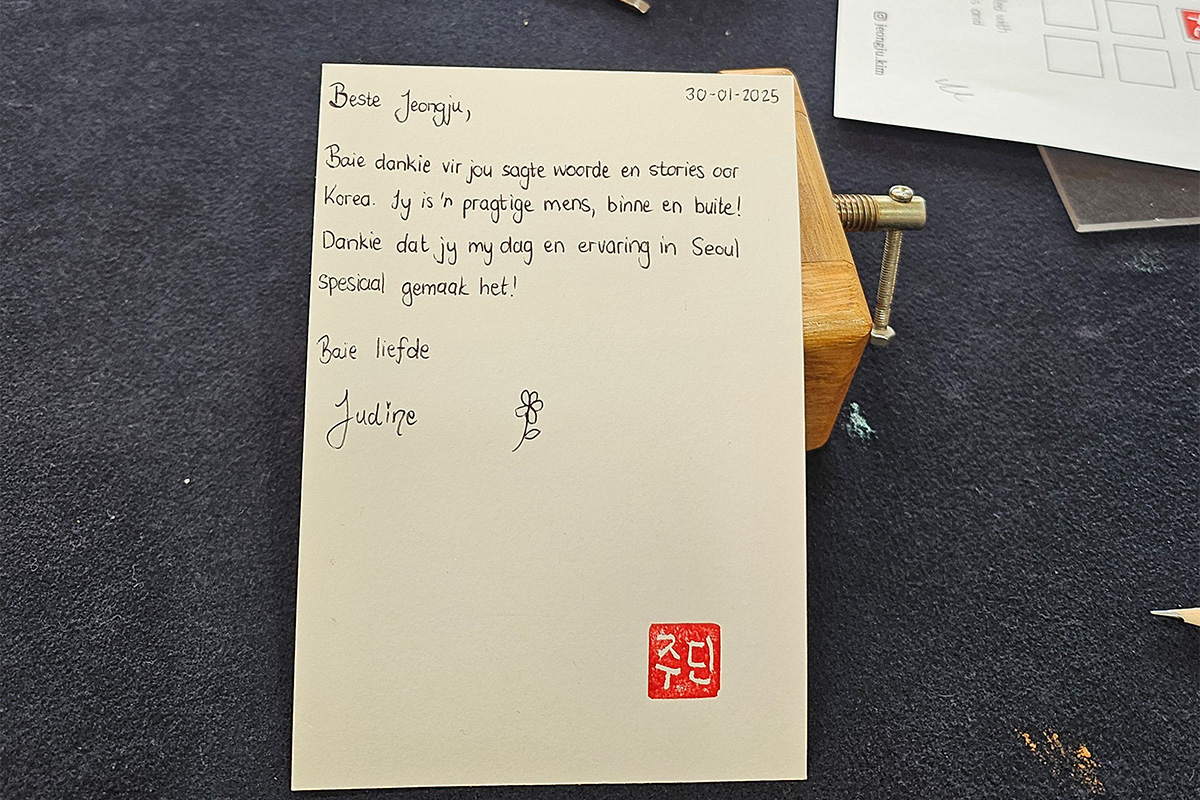 Beste Jeongju,
30-01-2025
Baie dankie vir jou sagte woorde en stories oor
Korea. Jy is 'n pragtige mens, binne en buite!
Dankie dat jy my dag en ervaring in Seoul
spesiaal gemaak het!
Baie liefde
Judine
주딘
@jeongju.kim
with
and